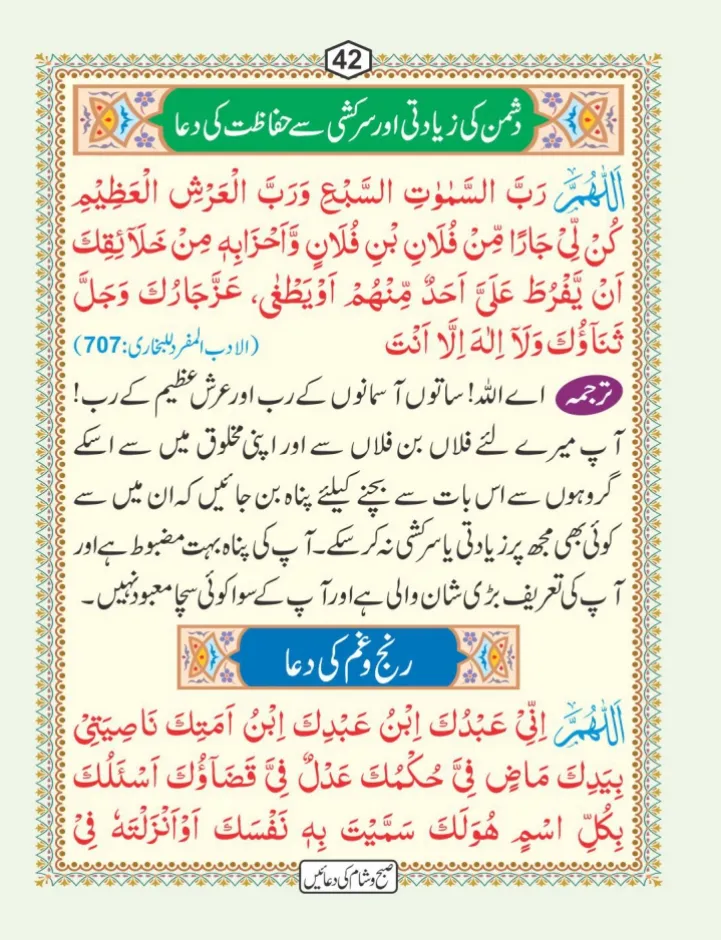 42
دشمن کی زیادتی اور سرکشی سے حفاظت کی دعا
اَللّٰهُمَّ رَبَّ السَّمٰوٰتِ السَّبْعِ وَرَبَّ الْعَرْشِ الْعَظِيْمِ
كُنْ لِّيْ جَارًا مِّنْ فُلَانِ بْنِ فُلَانٍ وَّاَحْزَابِهٖ مِنْ خَلَآئِقِكَ
اَنْ يَّفْرُطَ عَلَيَّ اَحَدٌ مِّنْهُمْ اَوْيَطْغٰى، عَزَّجَارُكَ وَجَلَّ
ثَنَآؤُكَ وَلَآ اِلٰهَ اِلَّا اَنْتَ (الادب المفرد للبخاری:707)
ترجمہ اے اللہ! ساتوں آسمانوں کے رب اور عرش عظیم کے رب!
آپ میرے لئے فلاں بن فلاں سے اور اپنی مخلوق میں سے اسکے
گروہوں سے اس بات سے بچنے کیلئے پناہ بن جائیں کہ ان میں سے
کوئی بھی مجھ پر زیادتی یا سرکشی نہ کر سکے۔ آپ کی پناہ بہت مضبوط ہے اور
آپ کی تعریف بڑی شان والی ہے اور آپ کے سوا کوئی سچا معبود نہیں۔
رنج و غم کی دعا
اَللّٰهُمَّ اِنِّيْ عَبْدُكَ اِبْنُ عَبْدِكَ اِبْنُ اَمَتِكَ نَاصِيَتِيْ
بِيَدِكَ مَاضٍ فِيَّ حُكْمُكَ عَدْلٌ فِيَّ قَضَآؤُكَ اَسْئَلُكَ
بِكُلِّ اسْمٍ هُوَلَكَ سَمَّيْتَ بِهٖ نَفْسَكَ اَوْاَنْزَلْتَهٗ فِيْ
صبح و شام کی دعائیں